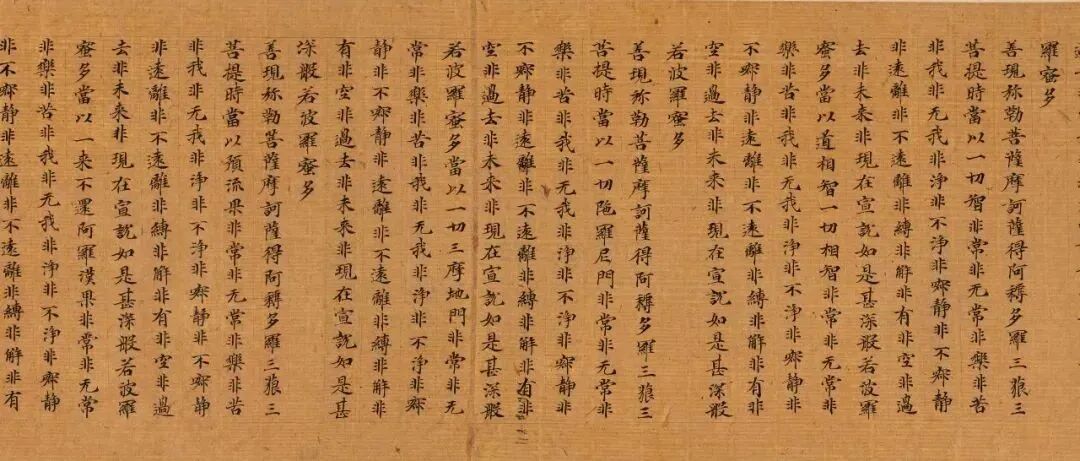 羅蜜多
善現弥勒菩薩摩訶薩得阿耨多羅三藐三
菩提時當以一切智非常非无常非樂非苦
非我非无我非淨非不淨非寂静非不寂静
非遠離非不遠離非縛非解非有非空非過
去非未来非現在宣説如是甚深般若波羅
蜜多當以道相智一切相智非常非无常非
樂非苦非我非无我非淨非不淨非寂静非
不寂静非遠離非不遠離非縛非解非有非
空非過去非未来非現在宣説如是甚深般
若波羅蜜多
善現弥勒菩薩摩訶薩得阿耨多羅三藐三
菩提時當以一切陁羅尼門非常非无常非
樂非苦非我非无我非淨非不淨非寂静非
不寂静非遠離非不遠離非縛非解非有非
空非過去非未来非現在宣説如是甚深般
若波羅蜜多當以一切三摩地門非常非无
常非樂非苦非我非无我非淨非不淨非寂
静非不寂静非遠離非不遠離非縛非解非
有非空非過去非未来非現在宣説如是甚
深般若波羅蜜多
善現弥勒菩薩摩訶薩得阿耨多羅三藐三
菩提時當以預流果非常非无常非樂非苦
非我非无我非淨非不淨非寂静非不寂静
非遠離非不遠離非縛非解非有非空非過
去非未来非現在宣説如是甚深般若波羅
蜜多當以一来不還阿羅漢果非常非无常
非樂非苦非我非无我非淨非不淨非寂静
非不寂静非遠離非不遠離非縛非解非有